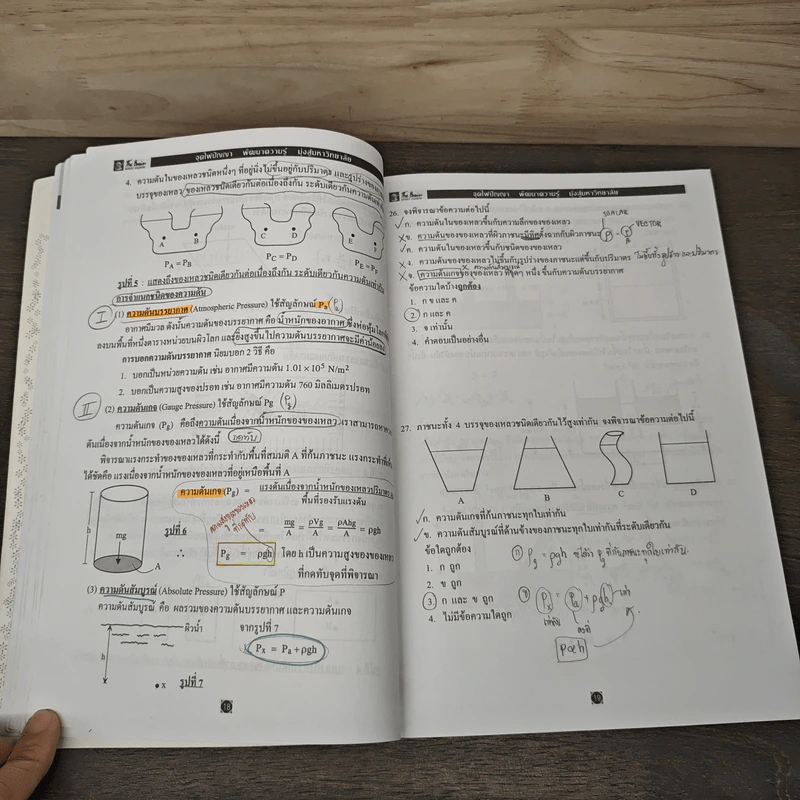 The Brain
จุดไฟปัญญา พัฒนาความรู้ มุ่งสู่มหาวิทยาลัย
4. ความดันในของเหลวชนิดหนึ่งๆ ที่อยู่นิ่งไม่ขึ้นอยู่กับปริมาตร และรูปร่างของ
บรรจุของเหลว ของเหลวชนิดเดียวกันต่อเนื่องถึงกัน ระดับเดียวกันความดัน
A B C D E
PA = PB PC = PD PE = P
รูปที่ 5 : แสดงถึงของเหลวชนิดเดียวกันต่อเนื่องถึงกัน ระดับเดียวกันความดันเท่ากัน
การจำแนกชนิดของความดัน
I (1) ความดันบรรยากาศ (Atmospheric Pressure) ใช้สัญลักษณ์ Pa (Pa)
อากาศมีมวล ดังนั้นความดันของบรรยากาศ คือ น้ำหนักของอากาศ ซึ่งห่อหุ้มโลก
ลงบนพื้นที่หนึ่งตารางหน่วยบนผิวโลก และยิ่งสูงขึ้นไปความดันบรรยากาศจะมีค่าน้อยลง
การบอกความดันบรรยากาศ นิยมบอก 2 วิธี คือ
1. บอกเป็นหน่วยความดัน เช่น อากาศมีความดัน 1.01 × 10⁵ N/m²
2. บอกเป็นความสูงของปรอท เช่น อากาศมีความดัน 760 มิลลิเมตรปรอท
II (2) ความดันเกจ (Gauge Pressure) ใช้สัญลักษณ์ Pg (Pg)
ความดันเกจ (Pg) คือถึงความดันเนื่องจากน้ำหนักของของเหลว เราสามารถหา
ดันเนื่องจากน้ำหนักของของเหลวได้ดังนี้ กดทับ
พิจารณาแรงกระทำของของเหลวที่กระทำกับพื้นที่สมมติ A ที่ก้นภาชนะ แรงกระทำที่
ได้ชัดคือ แรงเนื่องจากน้ำหนักของของเหลวที่อยู่เหนือพื้นที่ A
ความดันเกจ (Pg) = แรงดันเนื่องจากน้ำหนักของเหลวปริมาตร
พื้นที่รองรับแรงดัน
h mg A
รูปที่ 6 = mg/A = ρVg/A = ρAhg/A = ρgh
∴ Pg = ρgh โดย h เป็นความสูงของของเหลว
ที่กดทับจุดที่พิจารณา
(3) ความดันสัมบูรณ์ (Absolute Pressure) ใช้สัญลักษณ์ P
ความดันสัมบูรณ์ คือ ผลรวมของความดันบรรยากาศ และความดันเกจ
ผิวน้ำ จากรูปที่ 7
h Px = Pa + ρgh
x รูปที่ 7
18
The Brain
จุดไฟปัญญา พัฒนาความรู้ มุ่งสู่มหาวิทยาลัย
26. จงพิจารณาข้อความต่อไปนี้
SCALAR
ก. ความดันในของเหลวขึ้นกับความลึกของของเหลว
VECTOR
ข. ความดันของของเหลวที่ผิวภาชนะมีทิศตั้งฉากกับผิวภาชนะ P = F/A
ค. ความดันในของเหลวขึ้นกับชนิดของของเหลว
ง. ความดันของของเหลวไม่ขึ้นกับรูปร่างของภาชนะแต่ขึ้นกับปริมาตร ไม่ขึ้นทั้งรูปร่าง และปริมาตร
จ. ความดันเกจของของเหลว ที่จุดๆ หนึ่ง ขึ้นกับความดันบรรยากาศ
ข้อความใดบ้างถูกต้อง
1. ก ข และ ค
2. ก และ ค
3. จ เท่านั้น
4. คำตอบเป็นอย่างอื่น
27. ภาชนะทั้ง 4 บรรจุของเหลวชนิดเดียวกันไว้สูงเท่ากัน จงพิจารณาข้อความต่อไปนี้
A B C D
ก. ความดันเกจที่ก้นภาชนะทุกใบเท่ากัน
ข. ความดันสัมบูรณ์ที่ด้านข้างของภาชนะทุกใบเท่ากันที่ระดับเดียวกัน
ข้อใดถูกต้อง
ก Pg = ρgh
1. ก ถูก
2. ข ถูก
3. ก และ ข ถูก
ข Px = Pa + ρgh เท่า
4. ไม่มีข้อความใดถูก
เท่ากัน คงที่
P∝h
19